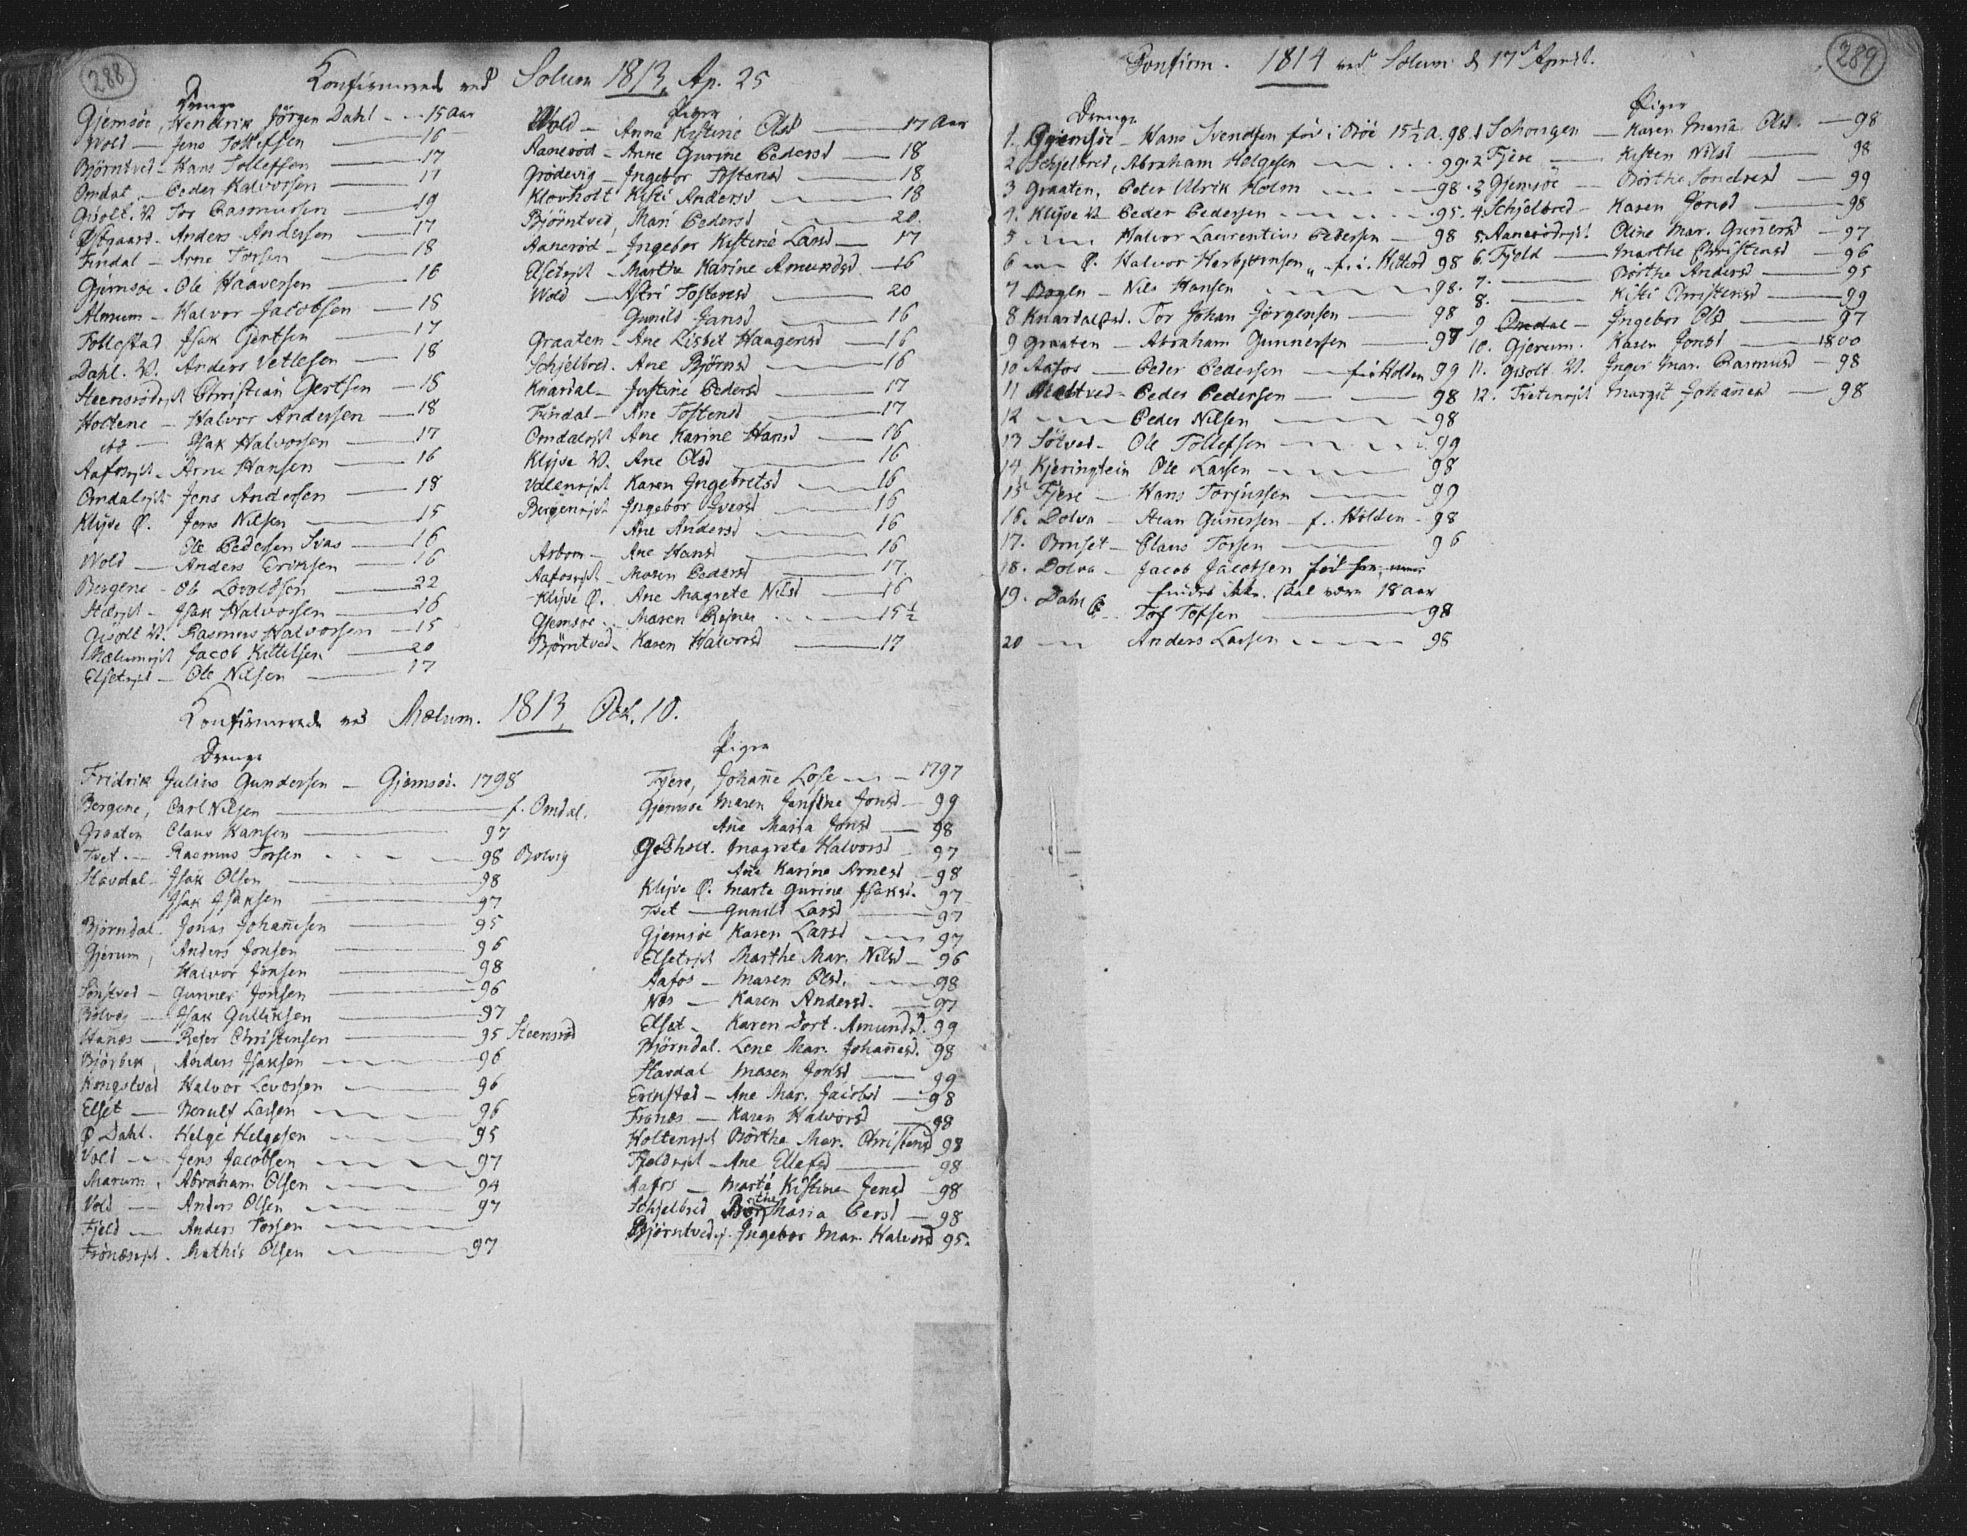 288
Konfirmerede ved Solum 1813, Ap. 25
Drenge
Gjemsöe, Hendrik Jörgen Dahl - 15 Aar
Wold - Jens Tollefsen - 16
Björntved - Hans Tollefsen - 17
Omdal - Peder Halvorsen - 17
Gisolt. V. Tor Rasmussen - 19
Østgaard. Anders Andersen - 17
Findal - Arne Torsen - 18
Gjemsöe. Ole Haaversen - 16
Almum - Halvor Jacobsen - 18
Follestad Isak Gertsen - 17
Dahl. V. Anders Vetlesen - 18
Steensrödejt Christian Gertsen - 18
Holtene - Halvor Andersen - 18
do - Isak Halvorsen - 17
Aafosejt - Arne Hansen - 16
Omdalejt - Jens Andersen - 18
Klyve Ø. Jens Nilsen - 15
Ole Pedersen Svas - 16
Wold - Anders Eriksen - 16
Bergene - Ole Lovoldsen - 22
Isak Halvorsen - 16
Gisolt V. Rasmus Halvorsen - 15
Mælumejt Jacob Kittilsen - 20
Elsetejt - Ole Nilsen - 17
Piger
Wold - Anne Kistine Olsd - 17 Aar
Aanerod - Anne Gurine Pedersd - 18
Grödevig - Ingebor Tostensd - 18
Klovholt Kisti Andersd - 18
Bjørntved, Mari Pedersd - 20.
Aanerød - Ingebor Kistine Larsd - 17
Elsetejt - Marthe Karine Amundsd - 16
Wold - Astri Tostensd - 20
Gunild Jansd - 16
Graaten - Ane Lisbet Haagensd - 16
Schjelbred. Ane Bjørnsd - 16
Knardal - Justine Pedersd - 17
Findal - Ane Tostensd - 17
Omdalejt Ane Karine Hansd - 16
Klyve V. Ane Olsd - 16
Karen Ingebretsd - 16
Bergenejt Ingebor Iversd - 16
Ane Andersd - 16
Ane Hansd - 16
Aafosejt - Maren Pedersd - 17
Klyve Ø. Ane Magrete Nilsd - 16
Gjemsöe - Maren - 15½
Bjørntved - Karen Halvorsd - 17
Konfirmerede ved Mælum. 1813, Oct. 10.
Drenge
Fridrik Julius Gundersen - Gjemsöe. 1798
Bergene, Carl Nilsen - f. Omdal.
Graaten Claus Hansen - 97
Tvet - Rasmus Torsen - 98 Bolvig
Havdal - Isak Olsen - 98
Isak Isaksen - 97
Björndal Jonas Johañesen - 95
Gjerum, Anders Jonsen - 96
Halvor Jonsen - 98
Gunner Jonsen - 96
Isak Gulliksen - 97
Christensen - 95 Steensröd
Anders Isaksen - 96
Kongstvad Halvor Levorsen - 96
Elset - Berulf Larsen - 96
Ø Dahl. Helge Helgesen - 95
Vold - Jens Jacobsen - 97
Marum. Abraham Olsen - 94
Vold - Anders Olsen - 97
Fjeld - Anders Torsen
Frönæsejt. Mathis Olsen - 97
Piger
Fjere, Johañe Lose - 1797
Gjemsöe Maren Jensine Jonsd - 99
Añe Maria Jonsd - 98
Gisholt. Magrete Halvorsd - 97
Añe Karine Arnesd - 98
Klyve Ø. Marte Gurine Isaksd. 97
Tvet - Gunild Larsd - 97
Gjemsöe Karen Larsd - 97
Elsetejt Marthe Mar. Nilsd - 96
Aafos - Maren Olsd. - 98
Næs - Karen Andersd. - 97
Elset - Karen Dort. Amundsd. 99
Björndal. Lene Mar. Johañesd. 98
Havdal Maren Jonsd - 99
Erikstad - Ane Mar. Jacobsd - 98
Fronæs - Karen Halvorsd - 98
Holtenejt Börthe Mar. Christensd 98
Fjeldejt - Ane Ellefsd - 98
Aafos - Marte Kistine Jensd - 98
Schjelbred Börthe Maria Persd - 98
Bjørntvedej. Ingebor Mar. Halvorsd 95.
289
Confirm. 1814 ved Solum d. 17d April.
Drenge
1. Gjemsöe - Hans Svendsen föd i Böe 15½ A. 98.
2 Schjelbred, Abraham Helgesen - 99.
3 Graaten, Peter Ulrik Holm - 98.
4. Klyve V. Peder Pedersen - 95.
5 Halvor Laurentius Pedersen - 98
6 Ø. Halvor Herbjørnsen - f. i Hitterd 98
7 Bogen - Nils Hansen - 98.
8 Knardalsd. Tor Johan Jörgensen - 98
9 Graaten - Abraham Gunnersen - 97
10 Aafos - Peder Pedersen - f. i Holden 99
11 Peder Pedersen - 98
12 Peder Nilsen - 98
13 Sötved - Ole Tollefsen - 99
14 Kjeringtein Ole Larsen - 98
15 Fjere - Hans Torjussen - 99
16. Dolva - Gunersen - f. Holden - 98
17. Bruset - Claus Torsen - 96
18. Dolva - Jacob Jacobsen
findes ikke. skal være 18 aar
19. Dahl Ø. Tof Tofsen - 98
20 Anders Larsen - 98
Piger
1 Schougen - Karen Maria Olsd. - 98
2 Fjere - Kisten Nilsd - 98
3 Gjemsöe - Börthe Sondresd - 99
4. Schjelbred - Karen Jonsd - 98
5. Aanerödejt. Oline Mar. Guñersd - 97
6. Fjeld - Marthe Christensd - 96
7. Börthe Andersd - 95
8. Kisti Christensd - 99
9 Omdal - Ingebor Olsd - 97
10. Gjerum. Karen Jonsd - 1800
11. Gisolt V. Inger Mar. Rasmusd - 98
12. Tvetenejt Margit Johañesd - 98